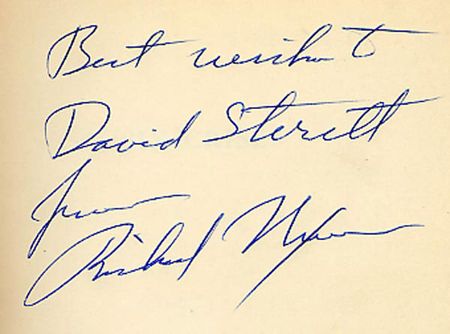 Best wishes to
David Sterritt
from
Richard Nixon